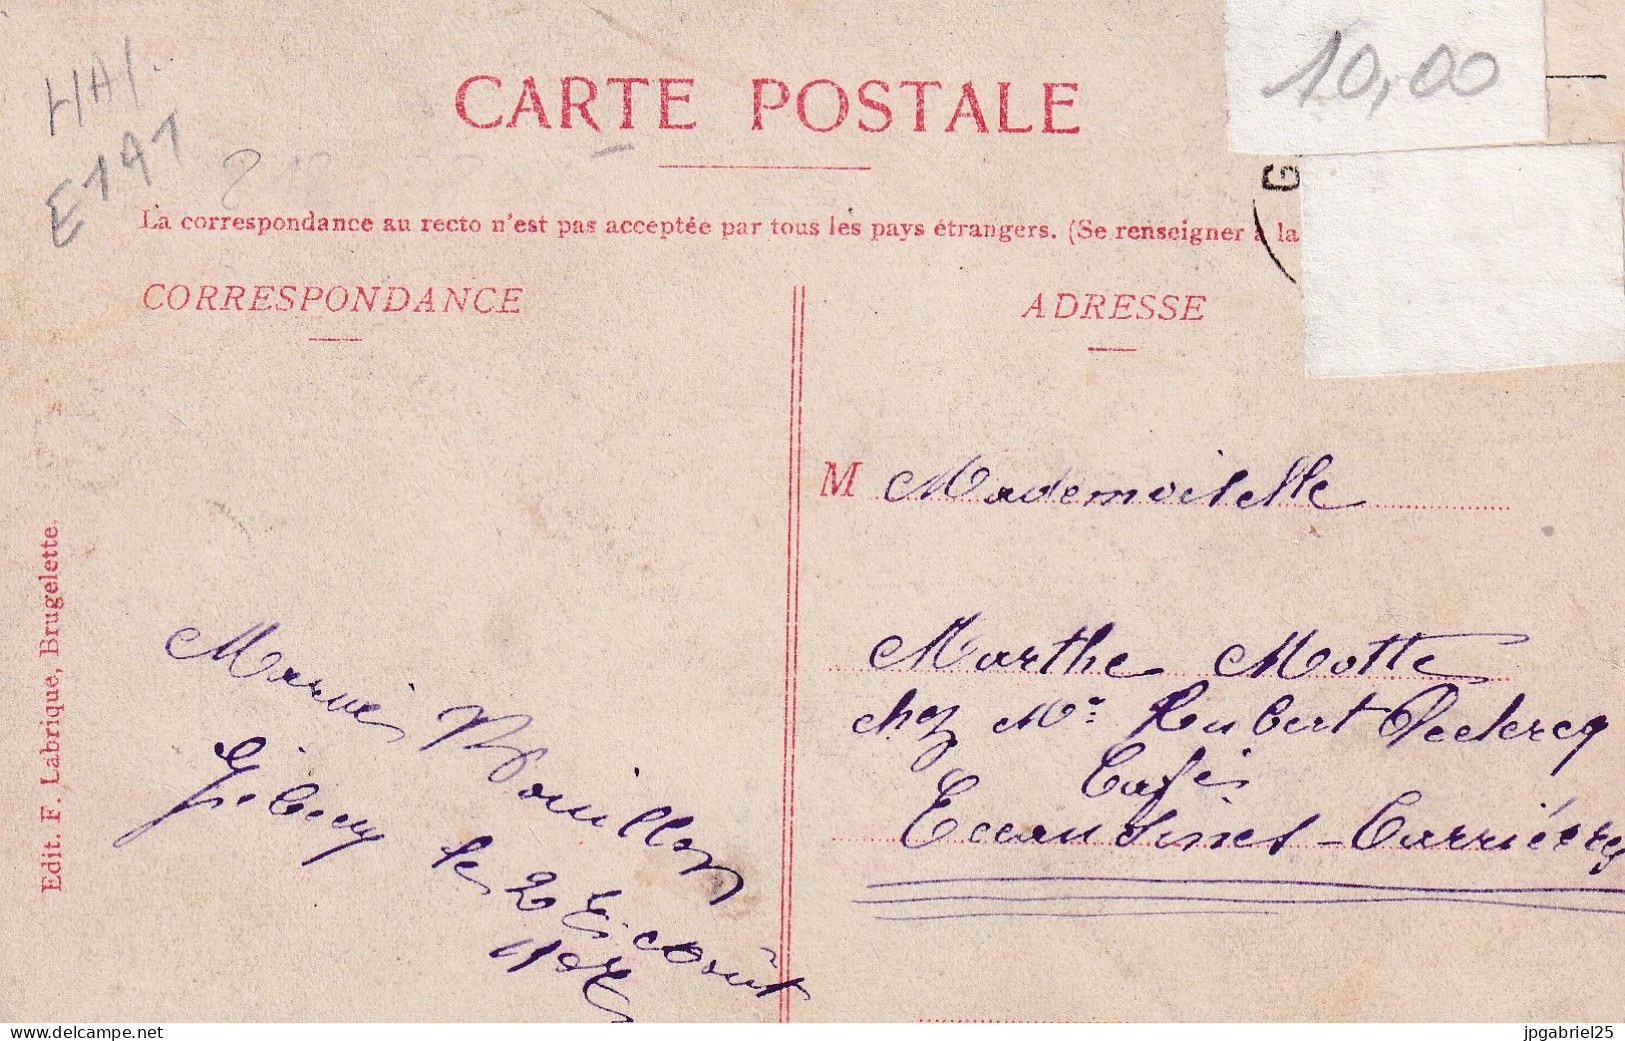 HAI.
E 191
10,00
CARTE POSTALE
G
La correspondance au recto n'est pas acceptée par tous les pays étrangers. (Se renseigner à la
CORRESPONDANCE
ADRESSE
M Mademoiselle
Marthe Motte
chez Mr Hubert Leclercq
Café
Ecaussines-Carrières
Bouillon
Gibecq le 2
Août
Edit. F. Labrique, Brugelette.
https://www.delcampe.net
jpgabriel25